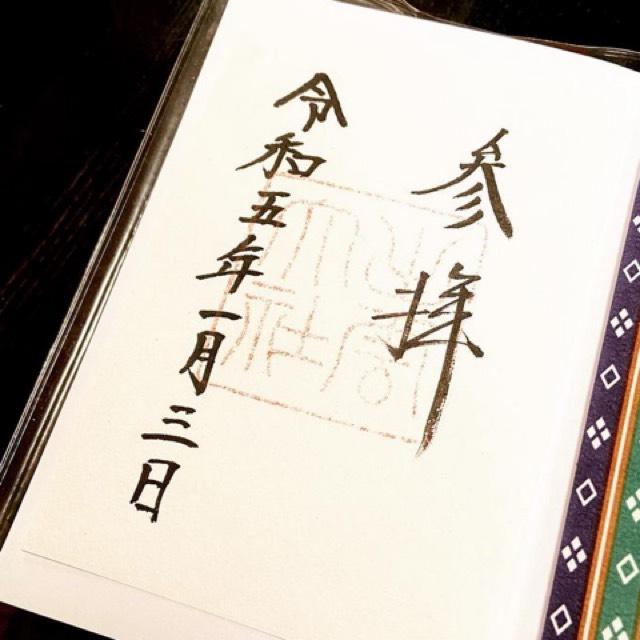 参拝
令和五年一月三日